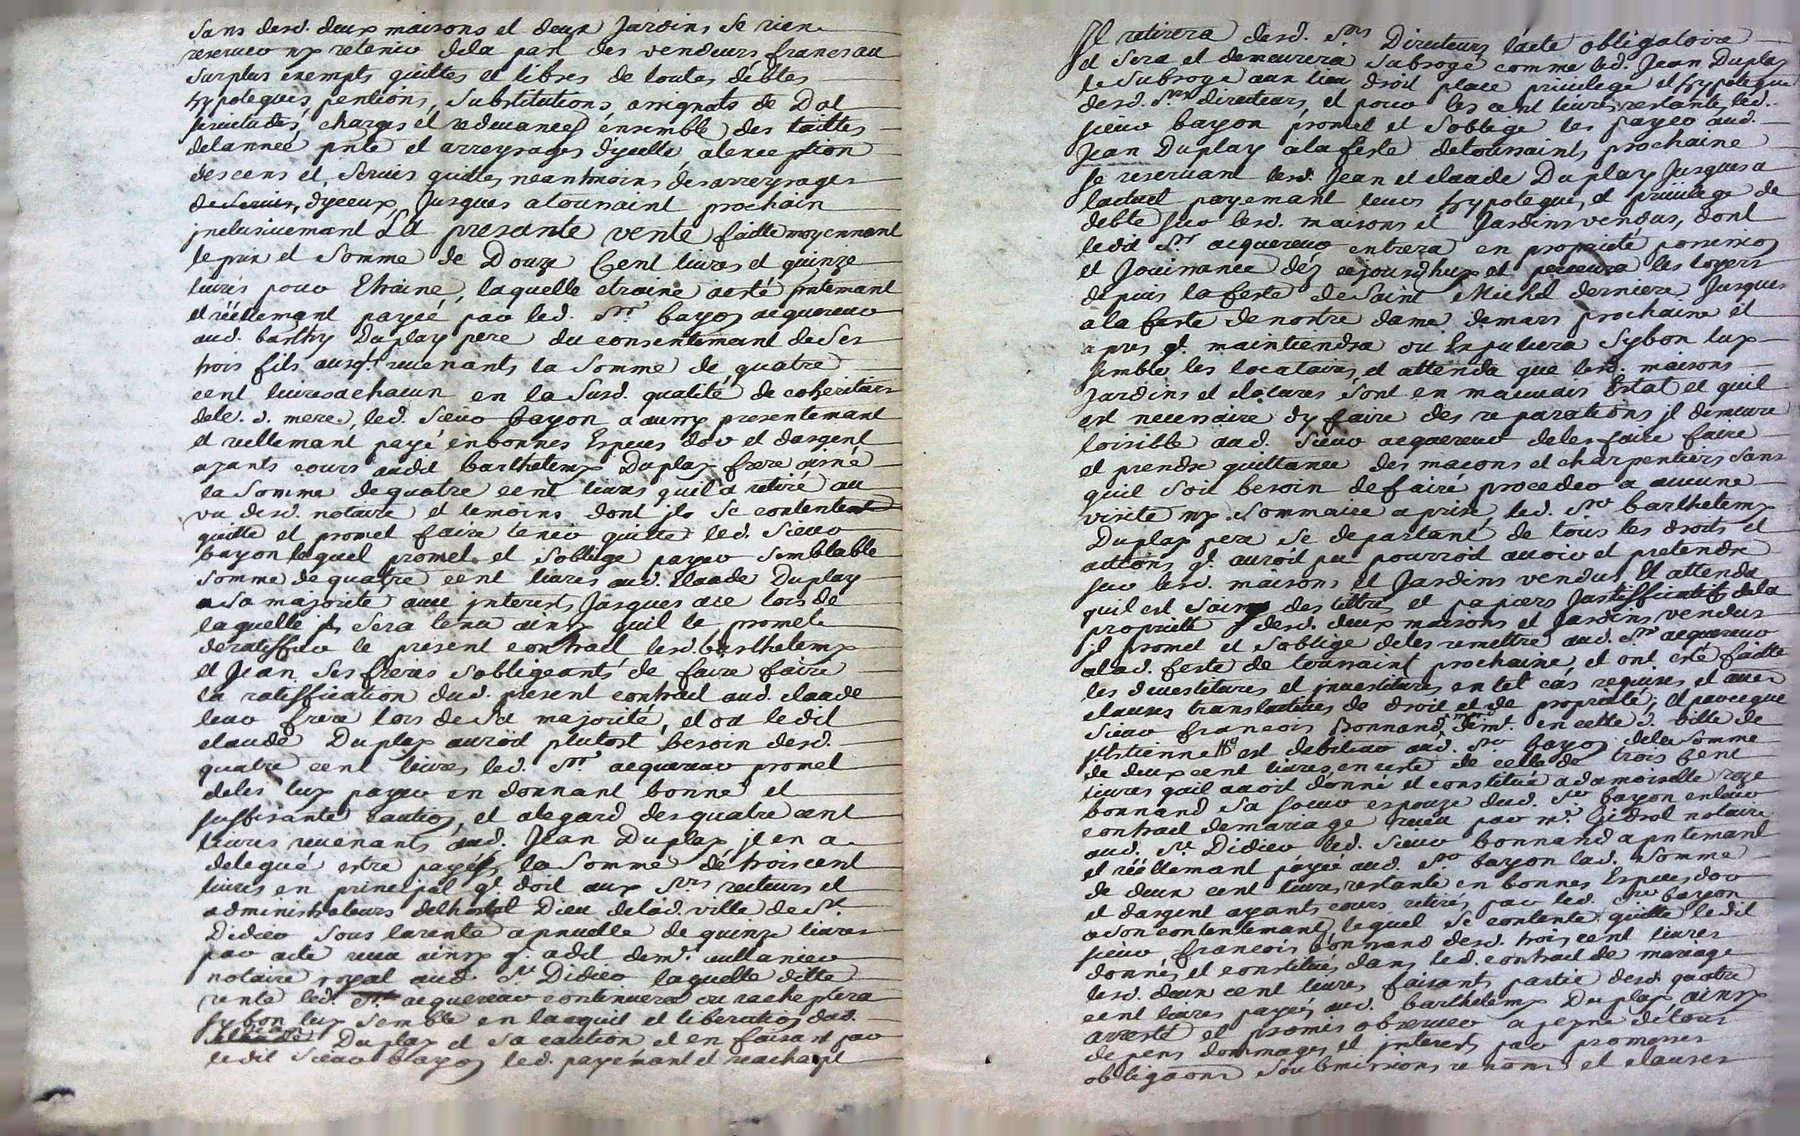 sans desd. deux maisons et deux Jardins se rien
reserver ny retenir dela part des vendeurs francs au
surplus exempts quittes et libres de toutes debtes
hypoteques pentions, substitutions assignats de Dot
servitudes, charges et redevances ensemble des tailles
delannée pnte et arreyrages dycelle, alexception
des cens et servis quittes neantmoins des arreyrages
de servis, dyceux, Jusques atoussaint prochain
jnclusivemant Ld presante vente faitte moyennant
le prix et somme de Douze Cent livres et quinze
livres pour Etraine, laquelle etraine aesté pntemant
et réellemant payée par led. Sr. bayon acquereur
aud. barthy Duplay pere du consentemant de ses
trois fils ausqls. revenants la somme de quatre
cent livres achacun en la susd. qualité de coheritiers
delad. d. mere, led. sieur bayon a aussy presentemant
et réellemant payé enbonnes Especes dor et dargent
ayants cours audit barthelemy Duplay frere aisné
la somme de quatre cent livres quil a retiré au
vu desd. notaire et temoins dont ils se contentent
quitte et promet faire tenir quitte led. sieur
bayon lequel promet et soblige payer semblable
somme de quatre cent livres aud. Claude Duplay
a sa majorité avec jnterests Jusques ace lors de
laquelle jl sera tenu ainsy quil le promet
de ratiffier le present contrait lesd. barthelemy
et Jean ses freres sobligeants de faire faire
la ratiffication dud. present contrait aud. claude
leur frere lors de sa majorité, et ou ledit
claude Duplay auroit plutost besoin desd.
quatre cent livres, led. Sr. acquereur promet
deles luy payer en donnant bonne et
suffisante caution, et alegard des quatre cent
livres revenants aud. Jean Duplay jl en a
delegué estre payées la somme de trois cent
livres en principal ql. doit aux Srs. recteurs et
administrateurs delhostel Dieu delad. ville de St.
Didier sous larente annuelle de quinze livres
par acte receu ainsy ql. adit de me.
notaire royal aud. St. Didier laquelle ditte
rente led. Sr. acquereur continuera ou racheptera
sy bon luy semble en lacquit et liberation dud.
Jean Duplay et sa caution et en faisant par
ledit sieur bayon led. payemant et reachapt
Jl retirera desd. Srs Directeurs lacte obligatoire
et sera et demeurera subrogé comme led. Jean Duplay
le subroge aux lieu droit place privilege et hypoteque
desd. Srs directeurs, et pour les cent livres restants led.
sieur bayon promet et soblige les payer aud.
Jean Duplay ala feste detoussaint prochaine
se reservant lesd. Jean et claude Duplay Jusques a
lactuel payemant leurs hypoteque, et privilege de
debte sur lesd. maisons et Jardins vendus, dont
ledit Sr. acquereur entrera en proprieté possession
et Jouissance des cejourdhuy et percevra les loyers
depuis la feste de Saint Michel derniere Jusques
ala feste de nostre dame demars prochaine et
apres ql. maintiendra ou Expulsera sybon luy
semble les locataires, et attendu que lesd. maisons
Jardins et clotures sont en mauvais Estat et quil
est necessaire dy faire des reparations jl demeure
loisible aud. sieur acquereur deles faire faire
et prendre quittance des maçons et charpentiers sans
quil soit besoin de faire proceder a aucune
visite ny sommaire aprise, led. Sr. barthelemy
Duplay pere se departant de tous les droits et
actions ql. auroit pu pourroit avoir et pretendre
sur lesd. maisons et Jardins vendus et attendu
quil est saisy des tittres et papiers Justifficatifs dela
proprieté desd. deux maisons et Jardins vendus
jl promet et soblige deles remettre aud. Sr acquereur
alad. feste de toussaint prochaine, et ont esté faitte
les devestitures et jnvestitures en tel cas requises et avec
clauses translatives de droit et de proprieté, et parceque
sieur francois Bonnand en cette d. ville de
st. etienne est debiteur aud. Sr bayon dela somme
de deux cent livres en reste de celle de trois cent
livres quil avoit donné et constitué a damoiselle
bonnand sa soeur espouze dud. Sr bayon en leur
contrait de mariage receu par me. Gidrol notaire
aud. St. Didier led. sieur bonnand a pntemant
et réellemant payée aud. Sr bayon lad. somme
de deux cent livres, restante en bonnes Especes dor
et dargent ayants cours retirés par led. Sr bayon
a son contentemant, lequel se contente quitte ledit
sieur francois bonnand desd. trois cent livres
donnés et constitués dans led. contrait de mariage
lesd. deux cent livres faisants partie desd. quatre
cent livres payés aud. barthelemy Duplay ainsy
arresté et promis observer a peyne detous
depens dommages et jnterests par promesses
obligaons soubmissions renons et clauses